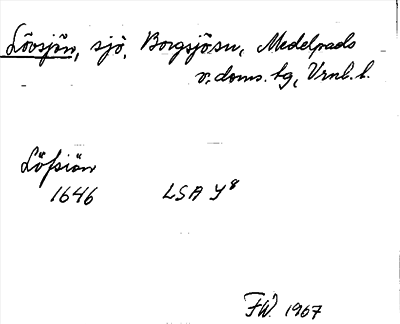 Lövsjön, sjö, Borgsjösn, Medelpads
v. doms. tg, Vrnl. l.
Löfsiön
1646 LSA Y8
FW. 1967